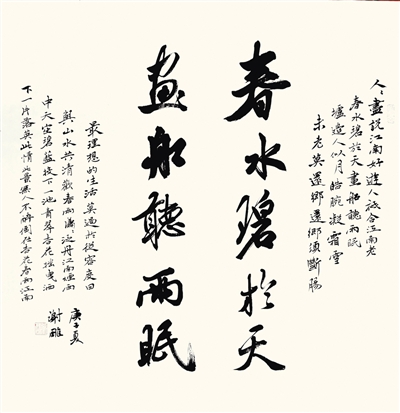 人人盡說江南好遊人祇合江南老
春水碧於天畫船聽雨眠
壚邊人似月皓腕凝霜雪
未老莫還鄉還鄉須斷腸
春水碧於天
畫船聽雨眠
最理想的生活莫過於從容度日
與山水共清歡春雨瀟瀟泛舟江南煙雨
中天空碧藍投下一池青翠杏花搖曳洒
下一片落英此情此景無人不醉倒在杏花春雨江南
庚子夏
謝